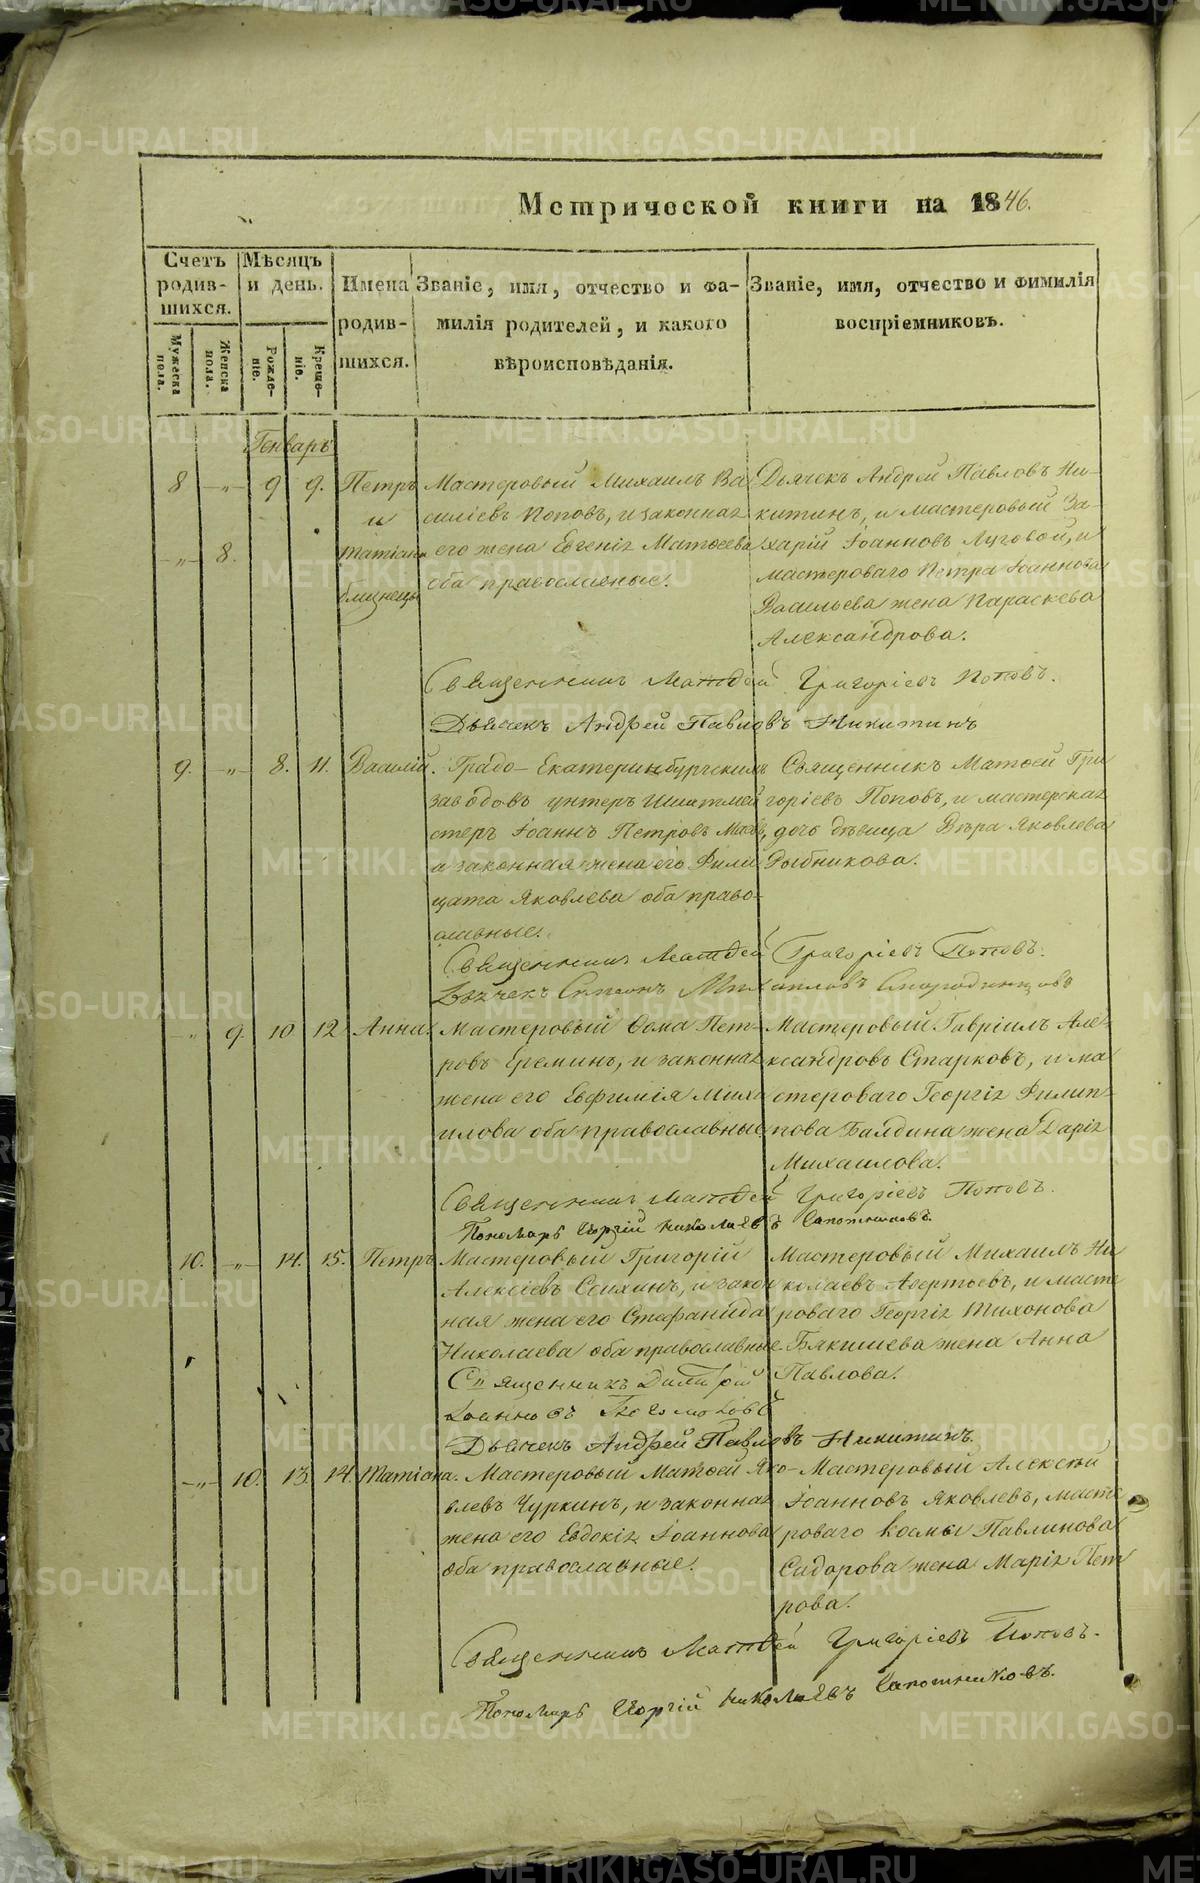 Метрической книги на 1846.
Счетъ родив-шихся.
Мужеска пола.
Женска пола.
Мѣсяцъ и день.
Рожде-ніе.
Креще-ніе.
Имена родив-шихся.
Званіе, имя, отчество и фа-
милія родителей, и какого
вѣроисповѣданія.
Званіе, имя, отчество и фимилія
воспріемниковъ.
Генварь
8 -"- 9 9. Петръ
и
-"- 8. Татіана
близнецы
Мастеровый Михаилъ Ва
силіевъ Поповъ, и законная
его жена Евгенія Матѳеева
оба православные.
Дьячекъ Андрей Павловъ Ни-
китинъ, и мастеровый За-
харій Іоанновъ Луговой, и
мастероваго Петра Іоаннова
Васильева жена Параскева
Александрова.
Священникъ Матѳей Григоріевъ Поповъ.
Дьячекъ Андрей Павловъ Никитинъ
9. -"- 8. 11. Василій.
Градо-Екатеринбургскихъ
заводовъ унтеръ Шихтмей
стеръ Іоаннъ Петровъ
и законная жена его Фили
цата Яковлева оба право-
славные.
Священникъ Матѳей Гри
горіевъ Поповъ, и мастерская
дочь дѣвица Вѣра Яковлева
Рыбникова.
Священникъ Матѳей Григоріевъ Поповъ.
Дьячекъ Симеонъ Михаиловъ Смородинцовъ
-"- 9. 10 12 Анна.
Мастеровый Ѳома Пет-
ровъ Ереминъ, и законная
жена его Евфимія Миха
илова оба православные
Мастеровый Гавріилъ Але-
ксандровъ Старковъ, и ма
стероваго Георгія Филип-
пова Балдина жена Дарія
Михаилова.
Священникъ Матѳей Григоріевъ Поповъ.
Пономарь Георгій Николаевъ Сапожниковъ.
10. -"- 14. 15. Петръ
Мастеровый Григорій
Алексіевъ, и закон
ная жена его Стефанида
Николаева оба православные
Мастеровый Михаилъ Ни
колаевъ, и масте
роваго Георгія Тихонова
Бякишева жена Анна
Павлова.
Священникъ Димитрій
Іоанновъ
Дьячекъ Андрей Павловъ Никитинъ.
-"- 10. 13. 14. Татіана.
Мастеровый Матѳей Яко-
влевъ Чуркинъ, и законная
жена его Евдокія Іоаннова
оба православные.
Мастеровый Алексѣй
Іоанновъ Яковлевъ, масте
роваго Космы Павлинова
Сидорова жена Марія Пет
рова.
Священникъ Матѳей Григоріевъ Поповъ.
Пономарь Георгій Николаевъ Сапожниковъ.
METRIKI.GASO-URAL.RU